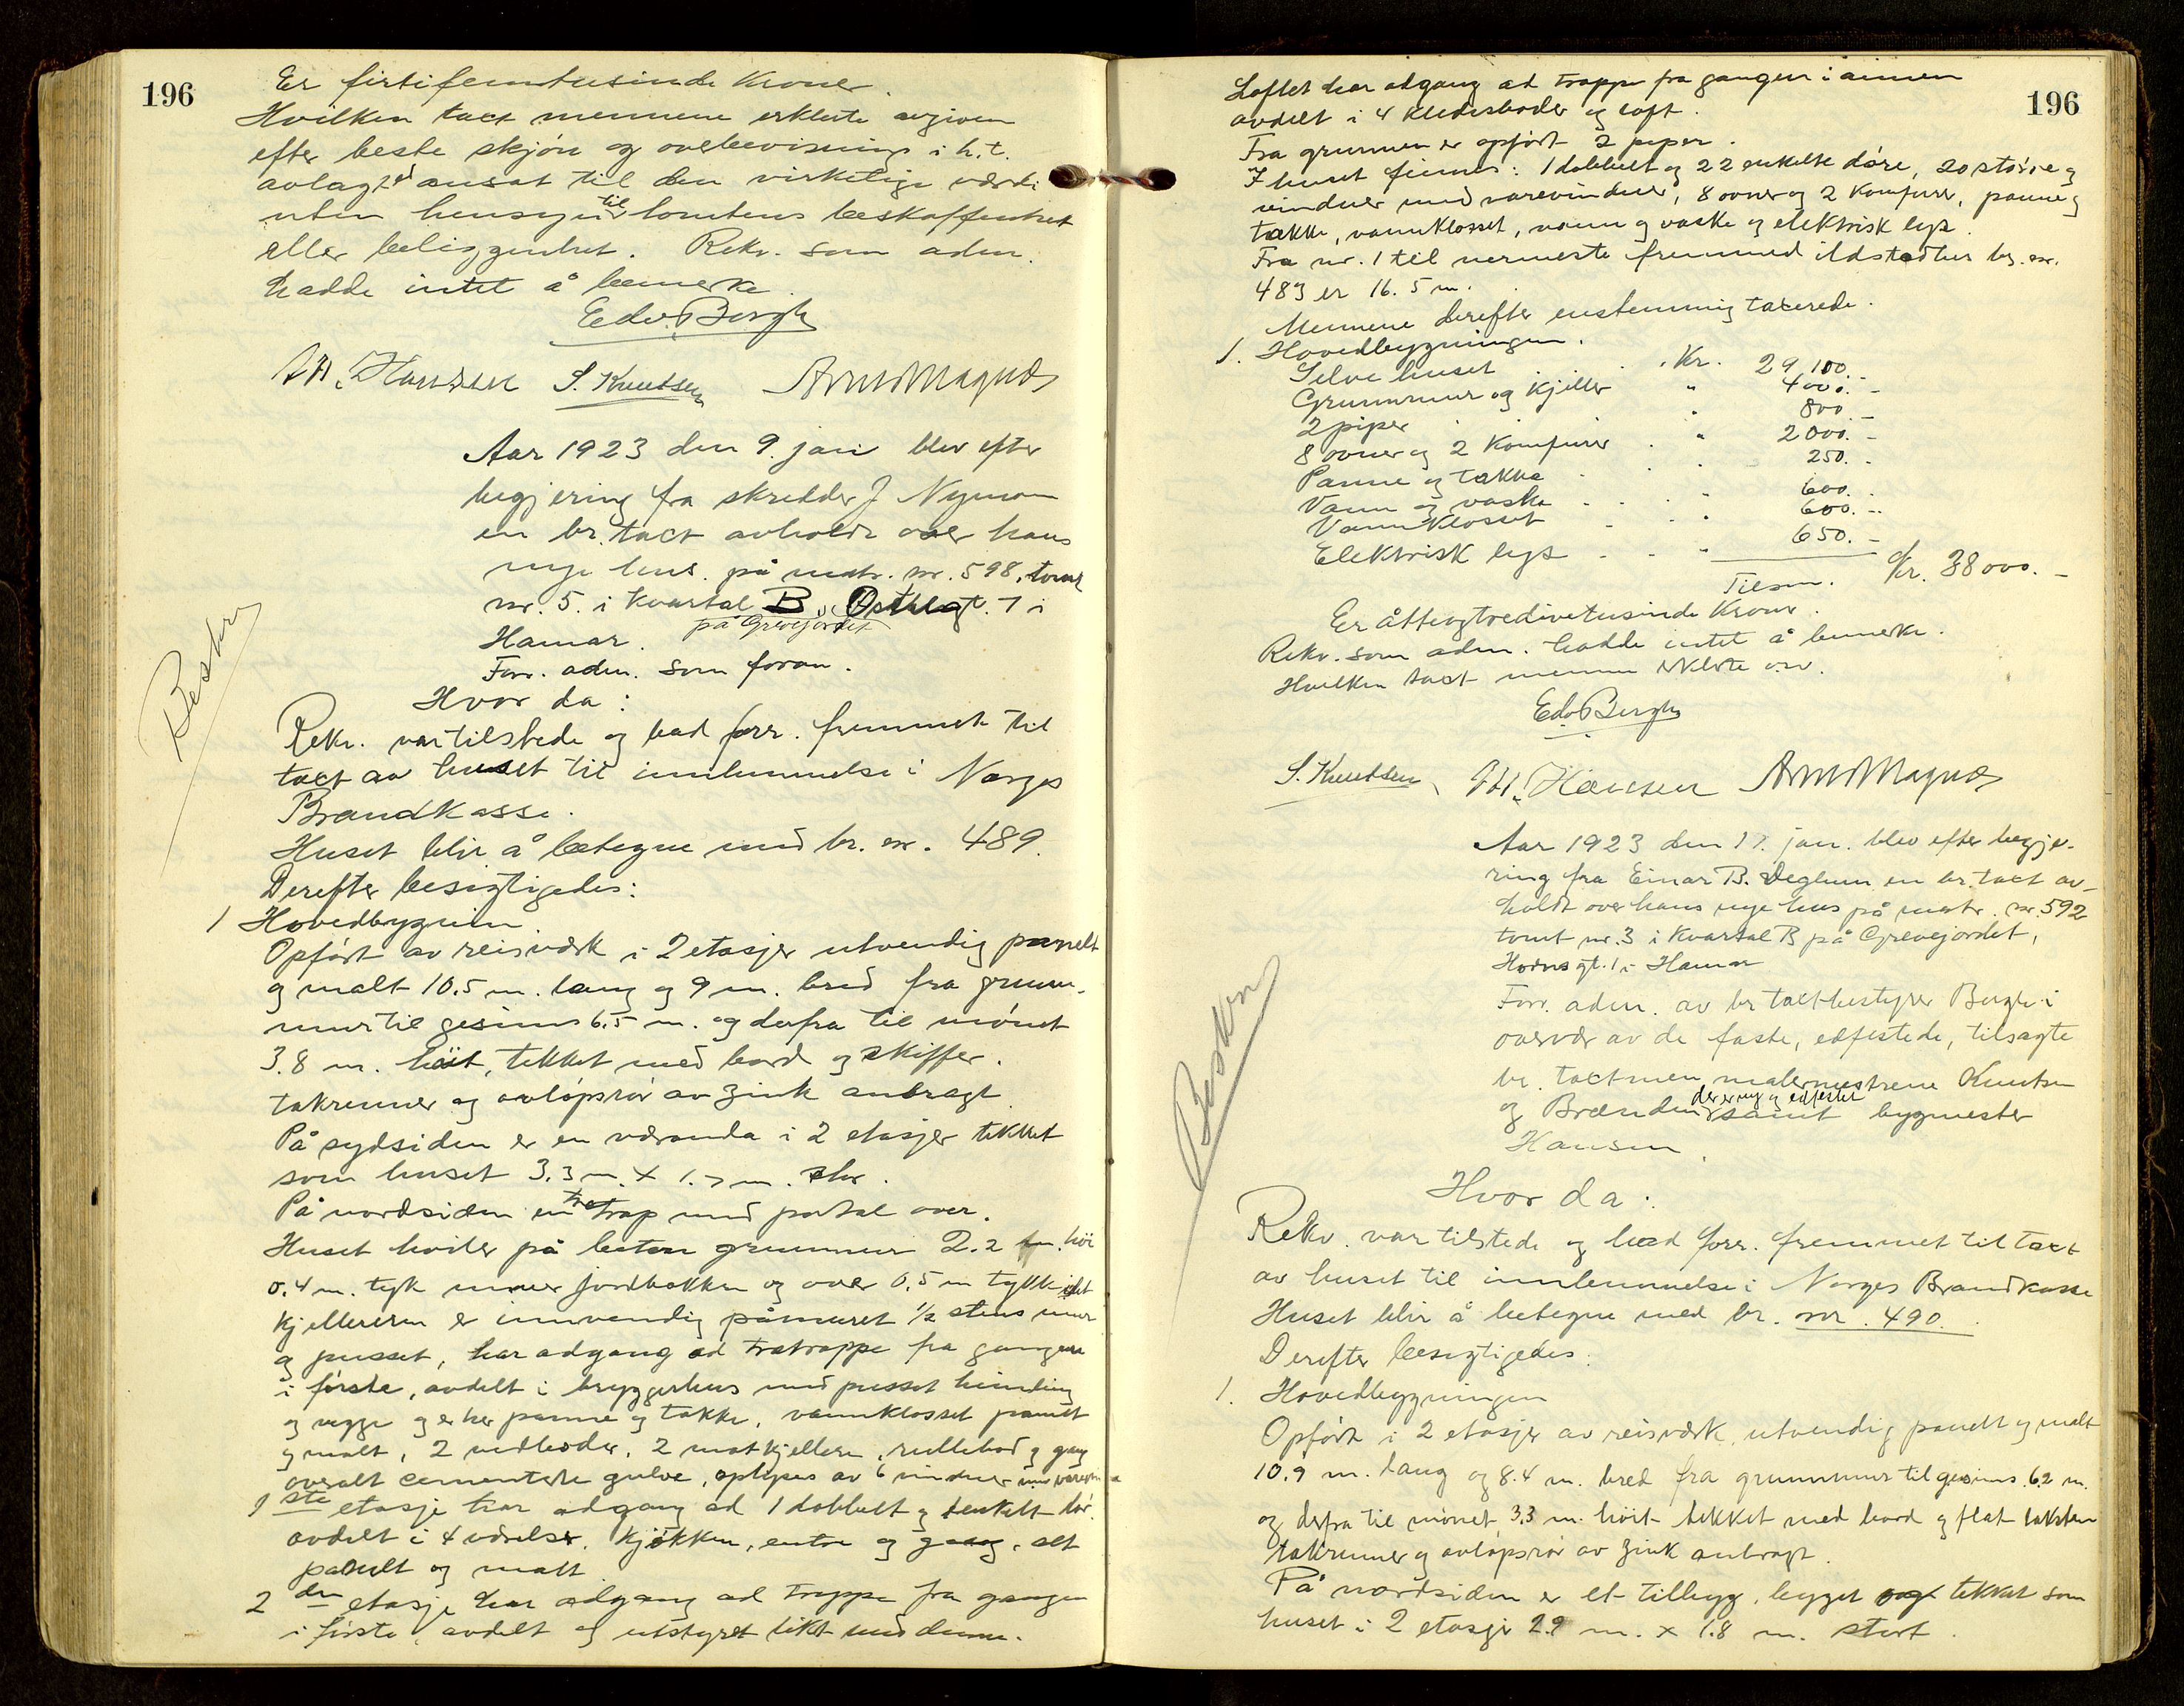 196
Er firtifemtusinde Kroner.
Hvilken taxt mennene erklerte avgiven
efter beste skjön og overbevisning i h.t.
avlagt ed ansat til den virkelige værdi
uten hensyn til tomtens beskaffenhet
eller beliggenhet. Rekv. som adm.
hadde intet å bemerke.
Edv. Bergh
Hansen S. Knutsen Arne Magnus
Aar 1923 den 9. jan blev efter
begjering fra skredder J Nyman
en br. taxt avholdt over hans
nye hus. på matr. nr. 598, tomt
nr. 5. i Kvartal B, Østbygt. 7 i
på Grevejordet
Hamar.
Forr. adm. som foran.
Hvor da:
Beskr
Rekv. var tilstede og bad forr. fremmet til
taxt av huset til innlemmelse i Norges
Brandkasse.
Huset blir å betegne med br. nr. 489.
Derefter besigtigedes:
1 Hovedbygnin.
Opfört av reisverk i 2 etasjer utvendig panelt
og malt 10.5 m. lang og 9 m. bred fra grunn-
mur til gesims 6.5 m. og derfra til mönet
3.8 m. höit, tekket med bord og skiffer.
takrenner og avlöpsrör av zink anbragt
På sydsiden er en veranda i 2 etasjer tekket
som huset 3.3 m. x 1.7 m. stor.
På nordsiden en tretrap med portal over.
Huset hviler på beton grunnmur 2.2 m. höi
0.4 m. tyk under jordbakken og over 0.5 m tykk idet
kjelleren er innvendig påmuret 1/2 stens mur
og pusset, har adgang ad tretrappe fra gangen
i förste, avdelt i bryggerhus med pusset himling
og vegge og er her panne og takke, vannklosset panelt
og malt, 2 vedboder, 2 matkjellere, rullebod og gang
overalt cementerte gulve, oplyses av 6 vinduer med varevin
1ste etasje har adgang ad 1 dobbelt og 1 enkelt dör.
avdelt i 4 værelser, kjökken, entre og gang, alt
panelt og malt
2den etasje har adgang ad trappe fra gangen
i förste, avdelt og utstyret likt med denne.
196
Loftet har adgang ad trappe fra gangen i annen
avdelt i 4 kledesboder og loft.
Fra grunnen er opfört 2 piper.
I huset finnes: 1 dobbelt og 22 enkelte döre, 20 större og
vinduer med varevinduer, 8 ovner og 2 Komfurer, panne og
takke, vannklosset, vann og vaske og elektrisk lys.
Fra nr. 1 til nermeste fremmed ildstedhus br. nr.
483 er 16.5 m.
Mennene derefter enstemmig taxerede.
1. Hovedbygningen.
Selve huset . . Kr. 29 100.-
Grunnmur og Kjeller " 4000.-
2 piper . " 800.-
8 ovner og 2 Komfurer . " 2000.-
Panne og takke . . 250.-
Vann og vaske . . . " 600.-
Vannklosset . . " 600.-
Elektrisk lys . . " 650.-
Tilsm. Kr. 38000.-
Er åtteogtredivetusinde Kroner.
Rekv. som adm. hadde intet å bemerke.
Hvilken taxt mennene erklerte osv.
Edv Bergh
S. Knutsen Hansen Arne Magnus
Aar 1923 den 17. jan. blev efter begje-
ring fra Einar B. Deglum en br. taxt av-
holdt over hans nye hus på matr. nr. 592
tomt nr. 3 i Kvartal B på Grevejordet,
Hornsgt. 1 i Hamar
Forr. adm. av br taxtbestyrer Bergh i
overvær av de faste, edfestede, tilsagte
br. taxtmen malermestrene Knutsen
og Brænden der er ny og edfestet samt bygmester
Hansen.
Hvor da:
Beskr
Rekv. var tilstede og bad forr. fremmet til taxt
av huset til innlemmelse i Norges Brandkasse
Huset blir å betegne med br. nr. 490.
Derefter besigtigedes.
1. Hovedbygningen
Opfört i 2 etasjer av reisverk, utvendig panelt og malt
10.9 m. lang og 8.4 m. bred fra grunnmur til gesims 6.2 m.
og derfra til mönet 3.3 m. höit tekket med bord og flat taksten
takrenner og avlöpsrör av zink anbragt.
På nordsiden er et tilbygg, bygget og tekket som
huset i 2 etasje 2.9 m. x 1.8 m. stort.